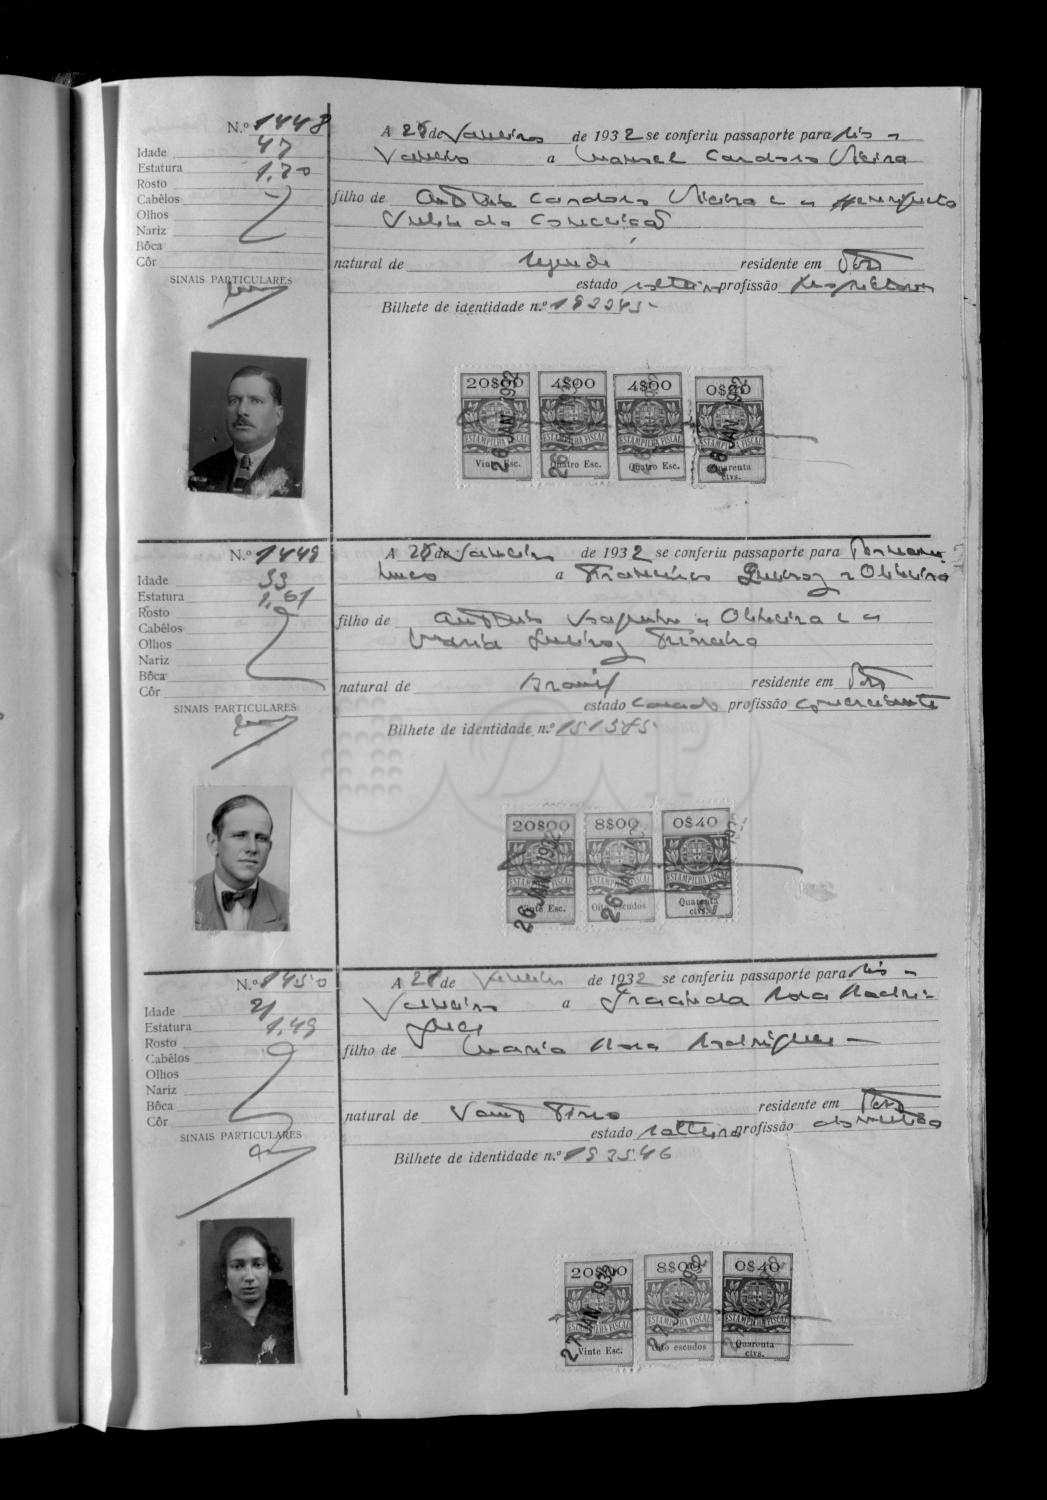 N.º 1448
A 25 de Janeiro de 1932 se conferiu passaporte para Rio de
Idade 47
Janeiro a Manuel Cardoso Vieira
Estatura 1,70
Rosto
Cabêlos
filho de António Cardoso Vieira e de
Olhos
da Conceição
Nariz
Bôca
Côr
natural de Rezende residente em Porto
SINAIS PARTICULARES
estado solteiro profissão
Bilhete de identidade n.º
20$00 4$00 4$00 0$40
26 JAN. 1932
ESTAMPILHA FISCAL ESTAMPILHA FISCAL ESTAMPILHA FISCAL ESTAMPILHA FISCAL
Vinte Esc. Quatro Esc. Quatro Esc. Quarenta ctvs.
N.º 1449
A 25 de Janeiro de 1932 se conferiu passaporte para Pernam
Idade 33
buco a Francisco Queiroz de Oliveira
Estatura 1,61
Rosto
Cabêlos
filho de António de Oliveira e de
Olhos
Maria Queiroz Pinheiro
Nariz
Bôca
Côr
natural de Brasil residente em Porto
SINAIS PARTICULARES
estado casado profissão comerciante
Bilhete de identidade n.º 151375
20$00 8$00 0$40
26 JAN. 1932
ESTAMPILHA FISCAL ESTAMPILHA FISCAL ESTAMPILHA FISCAL
Vinte Esc. Oito escudos Quarenta ctvs.
N.º 1450
A de Janeiro de 1932 se conferiu passaporte para Rio de
Idade 21
Janeiro a Gracinda Rosa Rodri-
Estatura 1,49
gues
Rosto
filho de Maria Rosa Rodrigues
Cabêlos
Olhos
Nariz
Bôca
Côr
natural de Santo Tirso residente em Porto
SINAIS PARTICULARES
estado solteira profissão
Bilhete de identidade n.º 192546
20$00 8$00 0$40
27 JAN. 1932
ESTAMPILHA FISCAL ESTAMPILHA FISCAL ESTAMPILHA FISCAL
Vinte Esc. Oito escudos Quarenta ctvs.